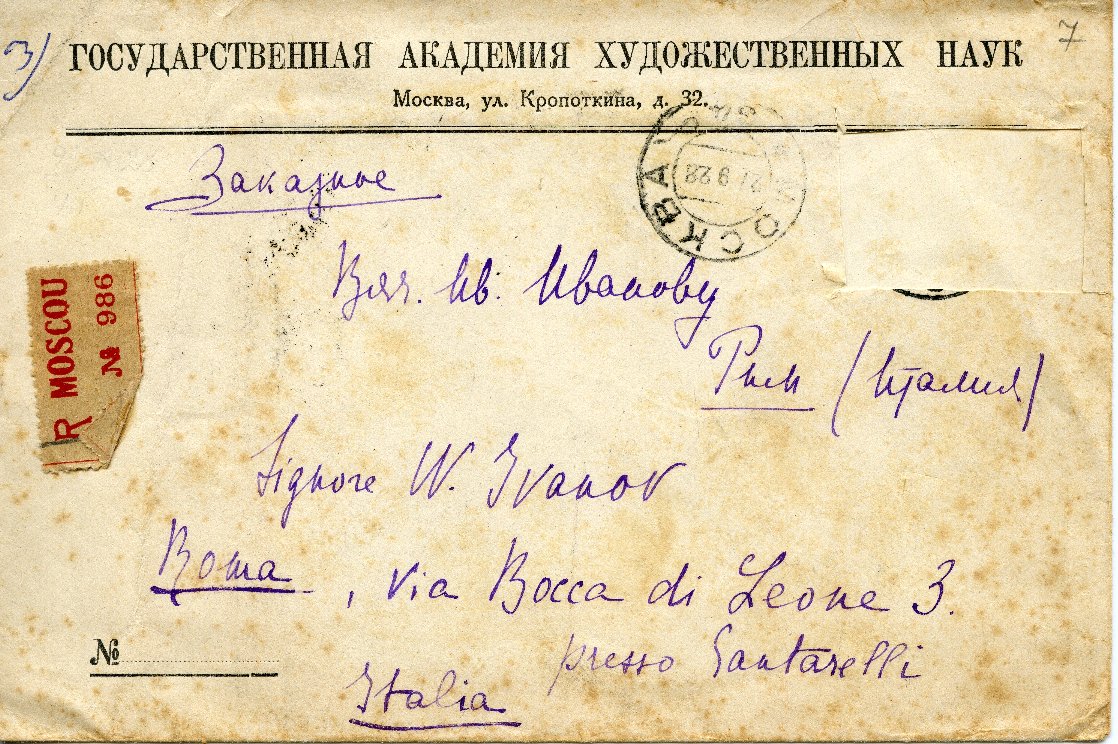 3)
7
ГОСУДАРСТВЕННАЯ АКАДЕМИЯ ХУДОЖЕСТВЕННЫХ НАУК
Москва, ул. Кропоткина, д. 32.
МОСКВА
27 9 28
Заказное
R MOSCOU
№ 986
Вяч. Ив. Иванову
Рим (Италия)
Signore W. Ivanov
Roma, via Bocca di Leone 3.
presso Santarelli
№
Italia